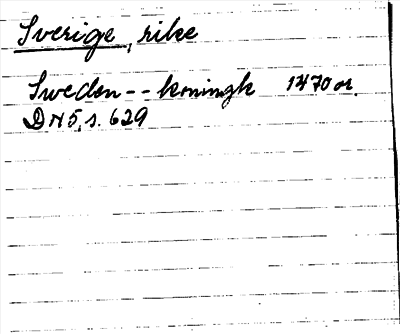 Sverige, rike
Sweden -- koningk 1470 or.
DN 5, s. 629